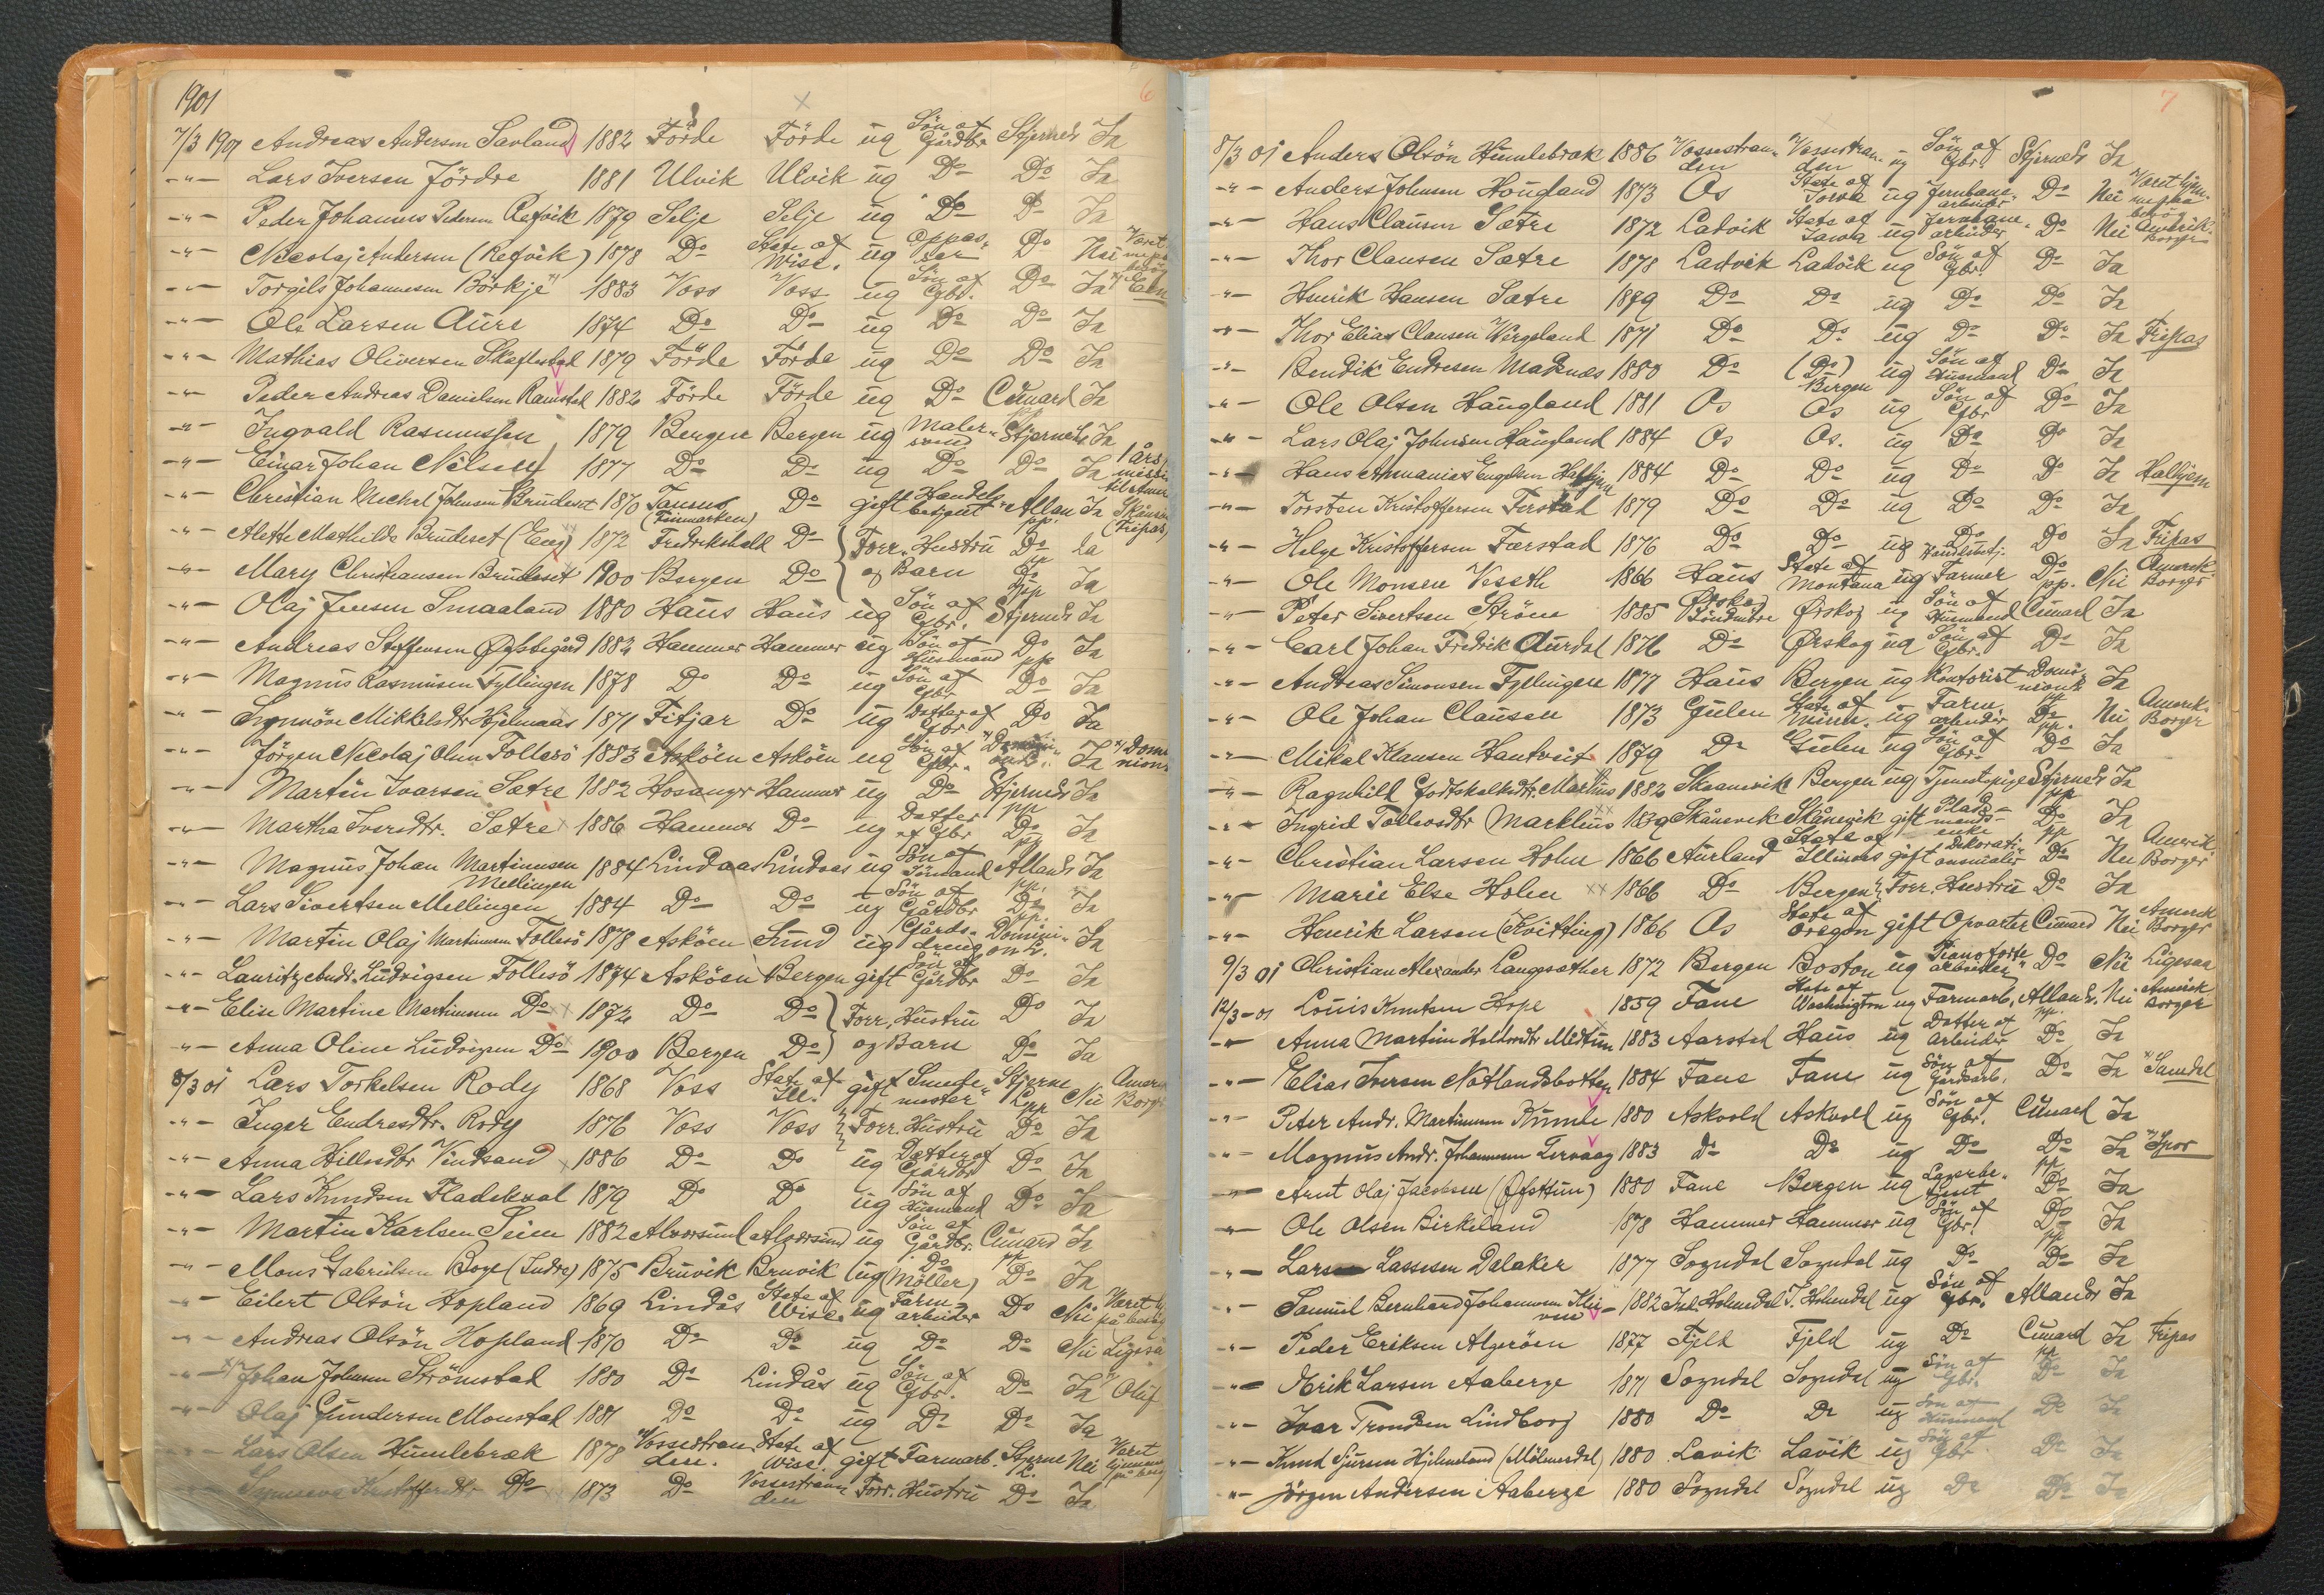 1901
6
7/3 1901 Andreas Andersen Savland 1882 Förde Förde ug Sön af Gårdbr Stjernel. Ja
-"- Lars Iversen Jördre 1881 Ulvik Ulvik ug Do Do Ja
-"- Peder Johannes Pedersen Refvik 1879 Selje Selje ug Do Do Ja
-"- Nicolaj Andersen (Refvik) 1878 Do State of Wisc. ug Oppas- ser Do Nei Været
-"- Torgils Johannesen Börkje 1883 Voss Voss ug Sön af Gbr. Do Ja
-"- Ole Larsen Aure 1874 Do Do ug Do Do Ja
-"- Mathias Oliversen Skaflestad 1879 Förde Förde ug Do Do Ja
-"- Peder Andreas Danielsen Ramstad 1882 Förde Förde ug Do Cunard Ja
-"- Ingvald Rasmussen 1879 Bergen Bergen ug Maler- svend Stjernel. Ja
-"- Einar Johan Nilsen 1877 Do Do ug Do Do Ja
-"- Christian Michal Johnsen Brudeset 1870 Tanens (Finmarken) Do gift Handels- betjent Allan pp. Ja (Fripas)
-"- Alette Mathilde Brudeset 1872 Fredrikshald Do Forr. Hustru Do Ja
-"- Mary Christiansen Brudeset 1900 Bergen Do og Barn Do Ja
-"- Olaj Jensen Smaaland 1880 Haus Haus ug Sön af Gbr. Stjernel. Ja
-"- Andreas Steffensen Öfstegård 1882 Hammer Hammer ug Sön af Husmand Do pp Ja
-"- Magnus Rasmusen Fyllingen 1878 Do Do ug Sön af Gbr Do Ja
-"- Synnöve Mikkelsdtr Hjelmaas 1871 Fitjar Do ug Datter af Gbr Do Ja
-"- Jörgen Nicolaj Olsen Follesö 1883 Asköen Asköen ug Sön af Gbr. Ja
-"- Martin Ivarsen Sætre 1882 Hosanger Hammer ug Do Stjernel. pp Ja
-"- Martha Iversdtr. Sætre 1886 Hammer Do ug Datter af Gbr Do pp Ja
-"- Magnus Johan Martinusen Mellingen 1884 Lindaas Lindaas ug Sön af Sömand Allanl. pp. Ja
-"- Lars Sivertsen Mellingen 1884 Do Do ug Sön af Gårdbr Do pp. Ja
-"- Martin Olaj Martinussen Follesö 1878 Asköen Sund ug Gårds- dreng Domini- on L. Ja
-"- Lauritz Andr. Ludvigsen Follesö 1874 Asköen Bergen gift Sön af Gårdbr Do Ja
-"- Elise Martine Martinussen Do 1872 Do Do Forr. Hustru Do Ja
-"- Anna Oline Ludvigsen Do 1900 Bergen Do og Barn Do Ja
8/3 01 Lars Torkelsen Rody 1868 Voss State of Ill. gift Smede- mester Stjerne L. pp Nei
-"- Inger Endresdtr. Rody 1876 Voss Voss Forr. Hustru Do Ja
-"- Anna Hillesdtr Vindsand 1886 Do Do ug Datter af Gårdbr Do Ja
-"- Lars Knudsen Fladekval 1879 Do Do ug Sön af Husmand Do Ja
-"- Martin Karlsen Seim 1882 Alversund Alversund ug Sön af Gårdbr. Cunard pp Ja
-"- Mons Gabrielsen Boge (Indre) 1875 Bruvik Bruvik ug Do (Möller) Do Ja
-"- Eilert Olsön Hopland 1869 Lindås State of Wisc. ug Farm- arbeider Do Nei Været
-"- Andreas Olsön Hopland 1870 Do Do ug Do Do Nei Ligeså
-"- Johan Johnsen Strömstad 1880 Do Lindås ug Sön af Gbr. Do Ja Oluf
-"- Olaj Gundersen Monstad 1881 Do Do ug Do Do Ja
-"- Lars Olsen Humlebræk 1878 Vossestran- den. State of Wisc. gift Farmarb. Stjerne L. Nei Været
-"- Do 1873 Do Vossestran- den Forr. Hustru Do Ja
7
8/3 01 Anders Olsön Humlebræk 1886 Vossestran- den Vossestran- den ug Sön af Gbr. Stjernel. Ja
-"- Anders Johnsen Hougland 1873 Os State of Iowa ug Jernbane- arbeider Do Nei
-"- Hans Clausen Sætre 1872 Ladvik State of Iowa ug Jernbane- arbeider Do Nei Amerik. Borger
-"- Thor Clausen Sætre 1878 Ladvik Ladvik ug Sön af Gbr. Do Ja
-"- Henrik Hansen Sætre 1879 Do Do ug Do Do Ja
-"- Thor Elias Clausen Wergeland 1871 Do Do ug Do Do Ja Fripas
-"- Bendik Endresen Madsnæs 1880 Do (Do) Bergen ug Sön af Husmand Do Ja
-"- Ole Olsen Haugland 1881 Os Os ug Sön af Gbr Do Ja
-"- Lars Olaj Johnsen Haugland 1884 Os Os. ug Do Do Ja
-"- Hans Annanias Engelsen 1884 Do Do ug Do Do Ja Halhjem
-"- Torsten Kristoffersen Ferstad 1879 Do Do ug Do Do Ja
-"- Helge Kristoffersen Færstad 1876 Do Do ug Do Handelsbetj. Do Ja Fripas
-"- Ole Monsen Veseth 1866 Haus State of Montana ug Farmer Do pp. Nei Amerik Borger
-"- Peter Sivertsen Ström 1885 Ørskog Söndmöre Ørskog ug Sön af Husmand Cunard Ja
-"- Carl Johan Fredrik Aurdal 1876 Do Ørskog ug Sön af Gbr. Do Ja
-"- Andreas Simonsen Fyllingen 1877 Haus Bergen ug Kontorist Domi- nionl. pp Ja
-"- Ole Johan Clausen 1873 Gulen State of Minn. ug Farm- arbeider Do pp. Nei Amerik. Borger
-"- Mikal Klausen Hantveit 1879 Do Gulen ug Sön af Gbr. Do Ja
-"- Ragnhild Godtskalksdtr. Markhus 1882 Skaanevik Bergen ug Tjenestepige Stjernel. pp Ja
-"- Ingrid Tollevsdtr Markhus 1839 Skånevik Skånevik gift Plads- mands- enke Do pp Ja
-"- Christian Larsen Holm 1866 Aurland State of Illinois gift Dekorati- onsmaler Do Nei Amerik Borger
-"- Marie Else Holm 1866 Do Bergen Forr. Hustru Do Ja
-"- Henrik Larsen (Kvitting) 1866 Os State of Oregon gift Opvarter Cunard Nei Amerik Borger
9/3 01 Christian Alexander Langesæther 1872 Bergen Boston ug Pianoforte arbeider Do Nei Ligesaa
12/3-01 Louis Knutsen Hope 1859 Fane State of Washington ug Farmarb. Allanl. pp. Nei Amerik Borger
-"- Anna Martine Halvordtr Midttun 1883 Aarstad Haus ug Datter af Arbeider Do Ja
-"- Elias Iversen Nötlandsbotten 1884 Fane Fane ug Sön af Gårdsarb. Do Ja
-"- Peter Andr. Martinussen Kumle 1880 Askvold Askvold ug Sön af Gbr. Cunard Ja
-"- Magnus Andr. Johannessen Lervaag 1883 Do Do ug Do Do pp Ja
-"- Arnt Olaj Jacobsen (Öfsttun) 1880 Fane Bergen ug Lagerbe- tjent Do Ja
-"- Ole Olsen Birkeland 1878 Hammer Hammer ug Sön af Gbr. Do pp Ja
-"- Lars Lassesen Dalaker 1877 Sogndal Sogndal ug Do Do Ja
-"- Samuel Bernhard Johannesen 1882 Ind. Holmedal I. Holmedal ug Sön af Gbr. Allanl. Ja
-"- Peder Eriksen Algeröen 1877 Fjeld Fjeld ug Do Cunard pp Ja Fripas
-"- Erik Larsen Aaberge 1871 Sogndal Sogndal ug Sön af Gbr. Do Ja
-"- Ivar Trondsen Lindborg 1880 Do Do ug Sön af Husmand Do Ja
-"- Knut Sjursen Hjelmeland (Mölmesdal) 1880 Lavik Lavik ug Sön af Gbr Do Ja
-"- Jörgen Andersen Aaberge 1880 Sogndal Sogndal ug Do Do Ja